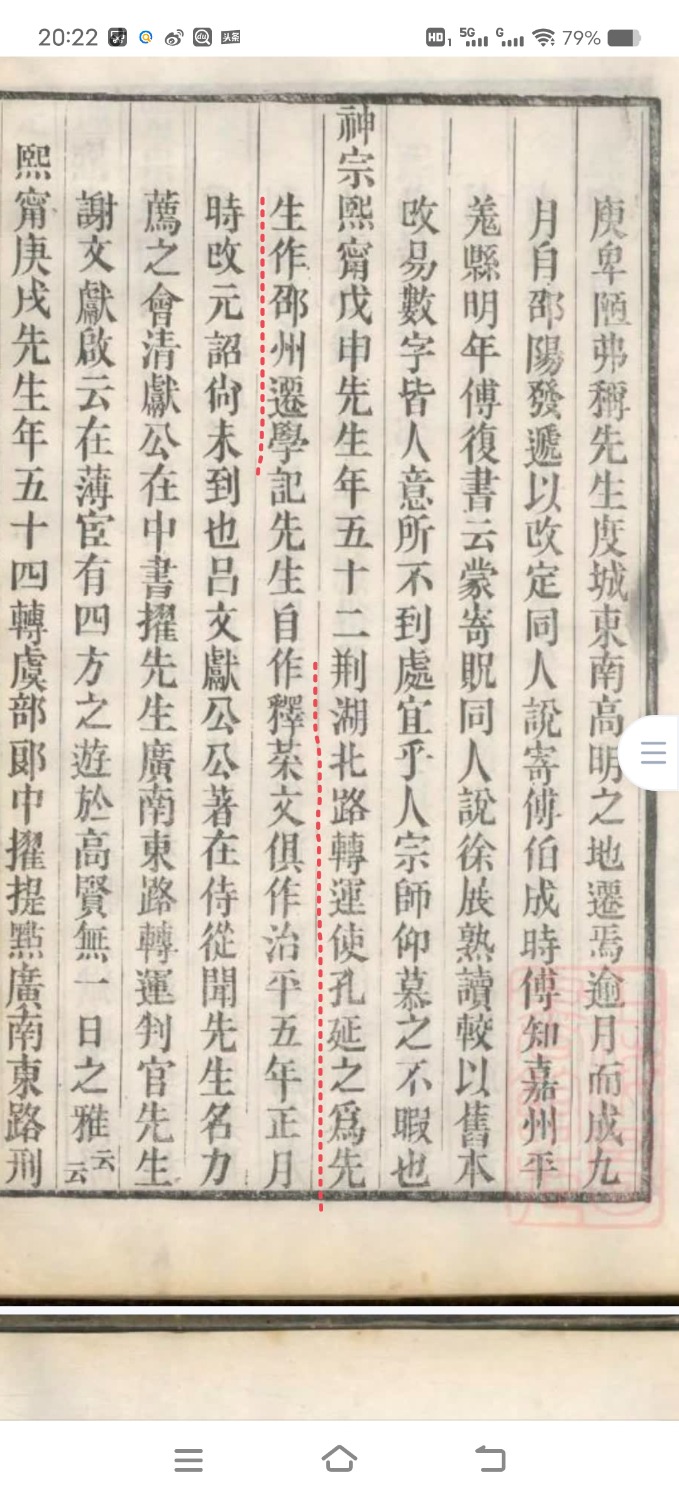 20:22
79%
庾卑陋弗稱先生度城東南高明之地遷焉逾月而成九
月自邵陽發遞以改定同人說寄傅伯成時傅知嘉州平
羌縣明年傅復書云蒙寄貺同人說徐展熟讀較以舊本
改易數字皆人意所不到處宜乎人宗師仰慕之不暇也
神宗熙甯戊申先生年五十二荆湖北路轉運使孔延之爲先
生作邵州遷學記先生自作釋菜文俱作治平五年正月
時改元詔尙未到也呂文獻公公著在侍從聞先生名力
薦之會清獻公在中書擢先生廣南東路轉運判官先生
謝文獻啟云在薄宦有四方之遊於高賢無一日之雅云云
熙甯庚戌先生年五十四轉虞部郎中擢提點廣南東路刑